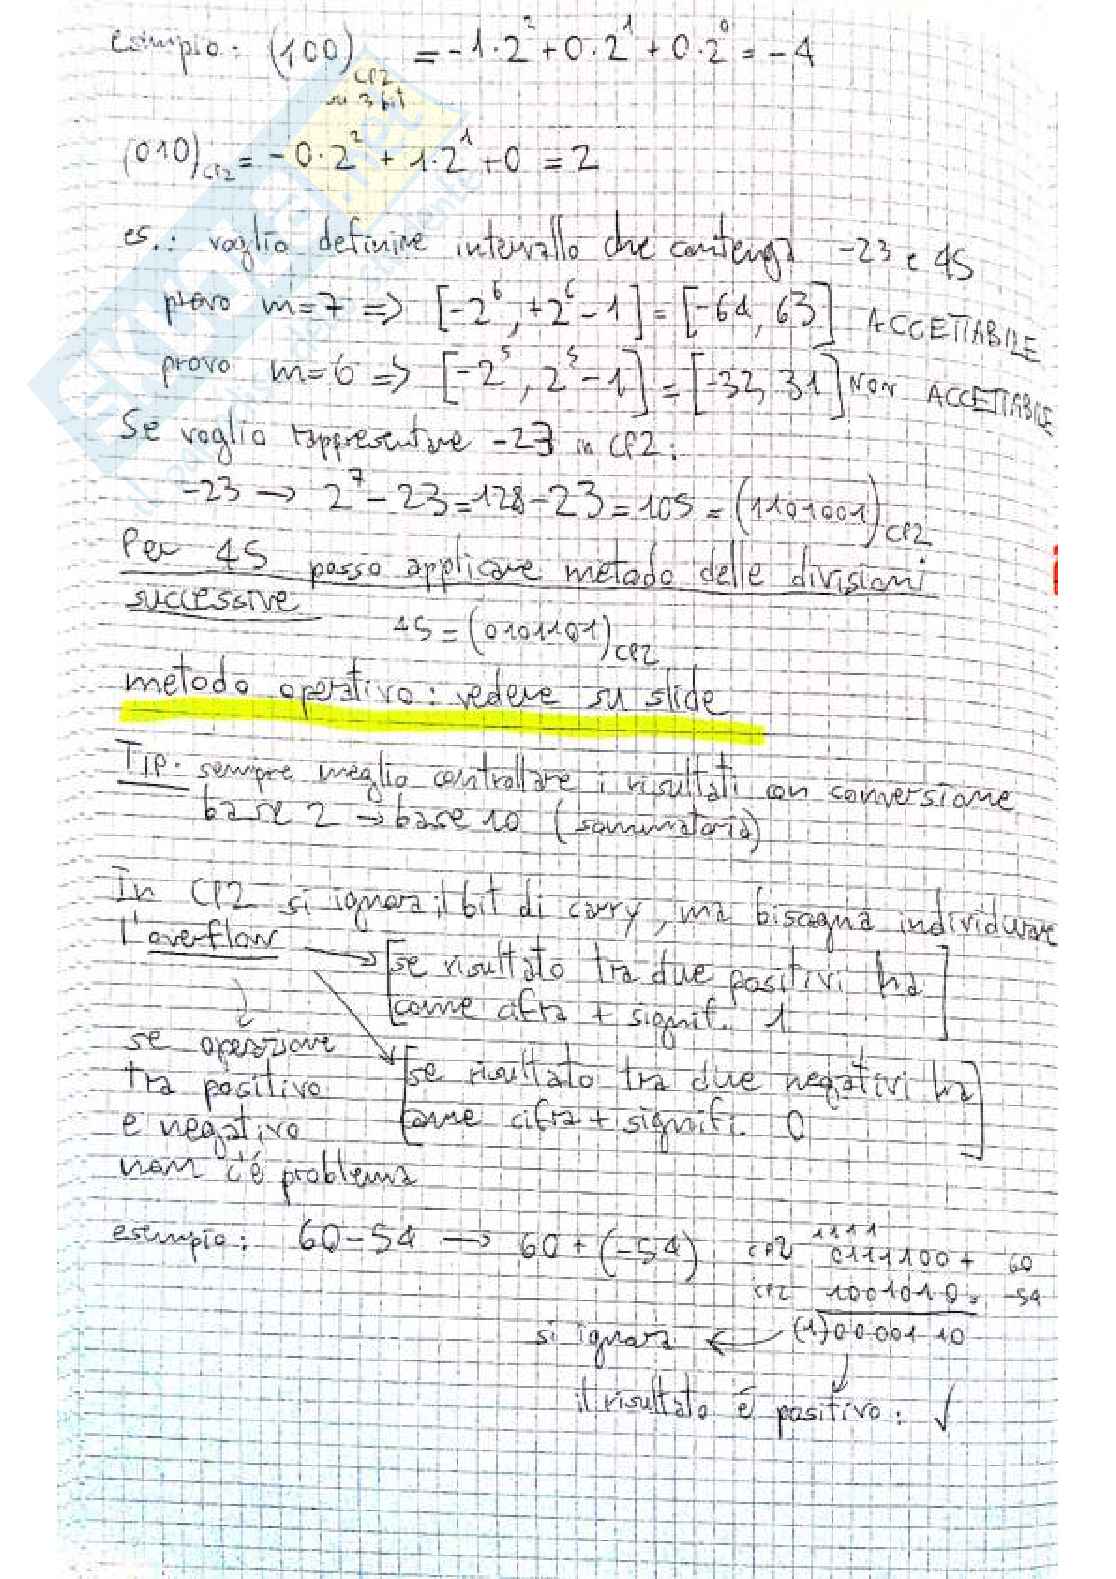 esempio: (100)CP2 su 3 bit = -1·2² + 0·2¹ + 0·2⁰ = -4
(010)CP2 = -0·2² + 1·2¹ + 0 = 2
es.: voglio definire intervallo che contenga -23 e 45
provo m=7 => [-2⁶, +2⁶-1] = [-64, 63] ACCETTABILE
provo m=6 => [-2⁵, 2⁵-1] = [-32, 31] NON ACCETTABILE
Se voglio rappresentare -23 in CP2:
-23 → 2⁷-23=128-23=105=(1101001)CP2
Per 45 posso applicare metodo delle divisioni
successive
45=(0101101)CP2
metodo operativo: vedere su slide
TIP. sempre meglio controllare i risultati con conversione
base 2 → base 10 (sommatoria)
In CP2 si ignora il bit di carry, ma bisogna individuare
l'overflow → [se risultato tra due positivi ha
come cifra + signif. 1]
[se risultato tra due negativi ha
come cifra + signifi. 0]
se operazione
tra positivo
e negativo
non c'è problema
esempio: 60-54 → 60+(-54)
1111
CP2 0111100 + 60
CP2 1001010 = -54
si ignora ← (1)0000110
il risultato è positivo: √